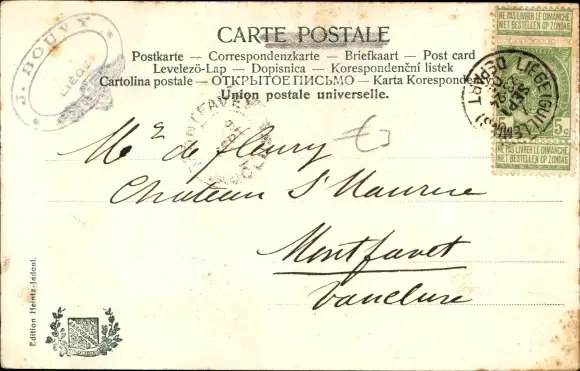 J. BOUVY
LIÉGE
CARTE POSTALE
Postkarte — Correspondenzkarte — Briefkaart — Post card
Levelező-Lap — Dopisnica — Korespondenční listek
Cartolina postale — ОТКРЫТОЕ ПИСЬМО — Karta Koresponden
Union postale universelle.
NE PAS LIVRER LE DIMANCHE
NIET BESTELLEN OP ZONDAG
LIEGE (GUI
DEPART
SEPT
5c 5c
NE PAS LIVRER LE DIMANCHE
NIET BESTELLEN OP ZONDAG
Mr de fleury
Chateau St Maurice
Montfavet
Vaucluse
Edition Heintz-Jadoul.